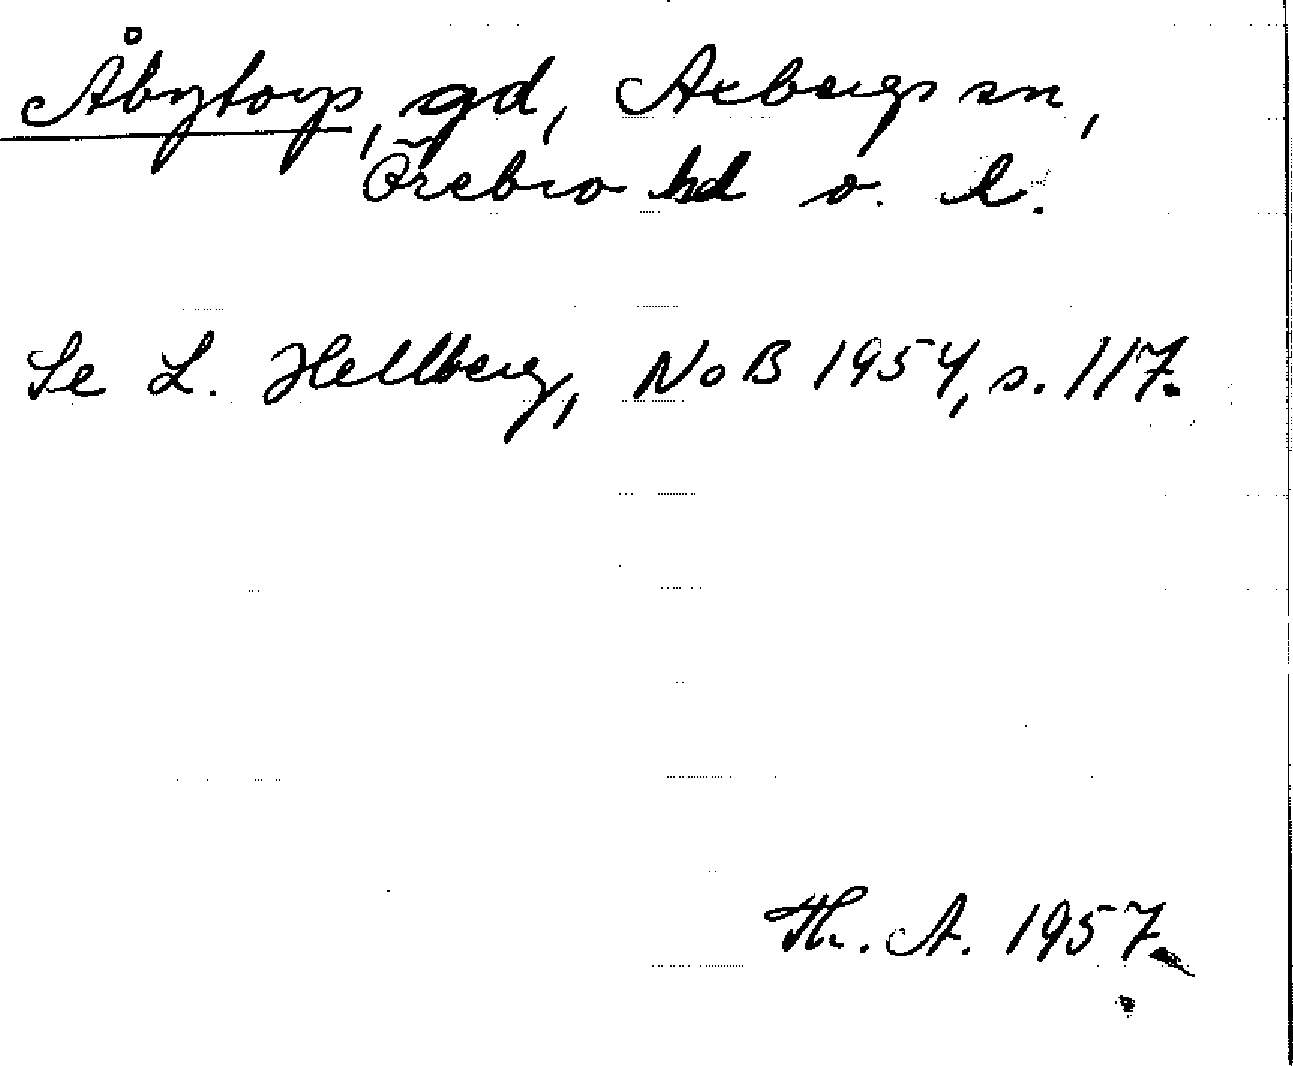 Åbytorp, gd, Axbergs sn,
Örebro hd o. l.
Se L. Hellberg, NoB 1954, s. 117.
Th. A. 1957.